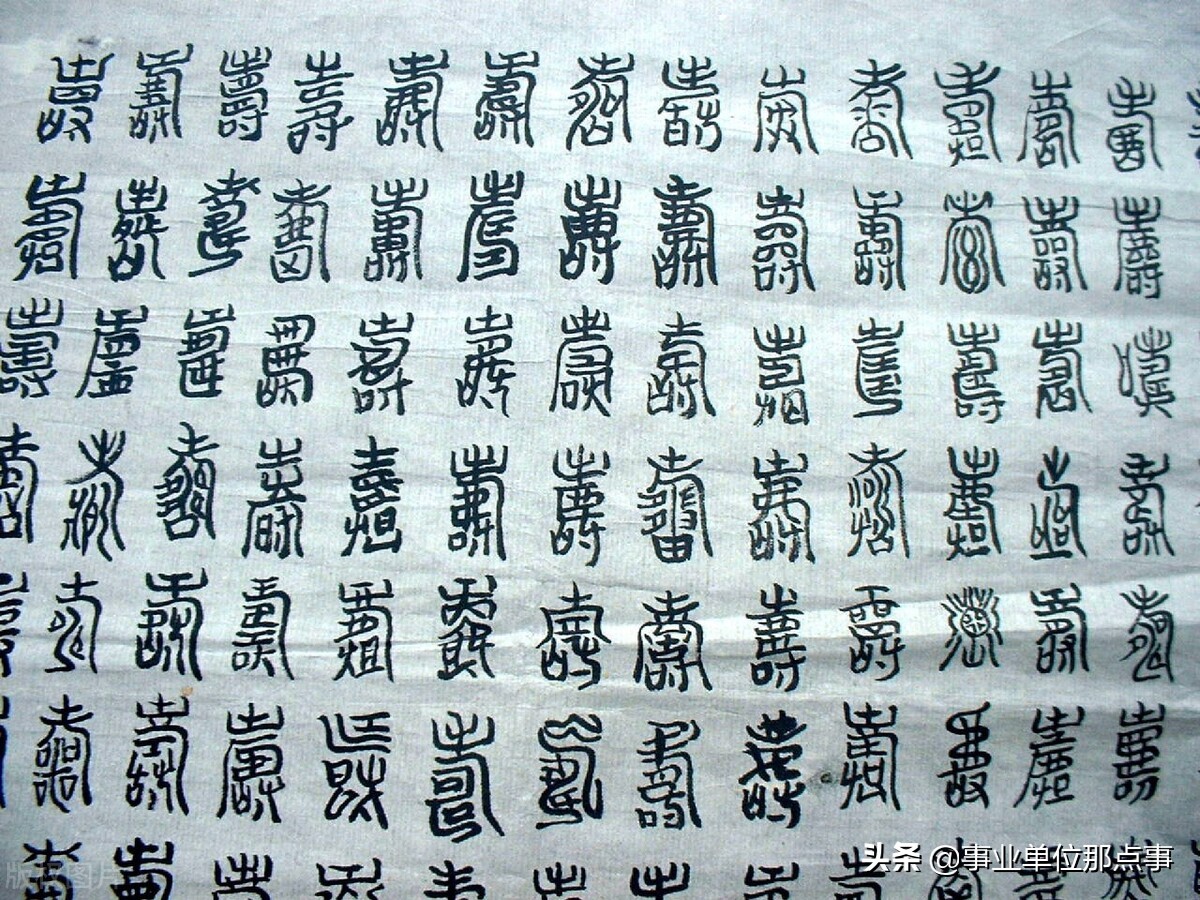 壽壽壽壽壽壽壽壽壽壽壽壽壽
壽壽壽壽壽壽壽壽壽壽壽壽壽
壽壽壽壽壽壽壽壽壽壽壽壽壽
壽壽壽壽壽壽壽壽壽壽壽壽壽
壽壽壽壽壽壽壽壽壽壽壽壽
壽壽壽壽壽壽壽壽壽壽壽壽
头条 @事业单位那点事